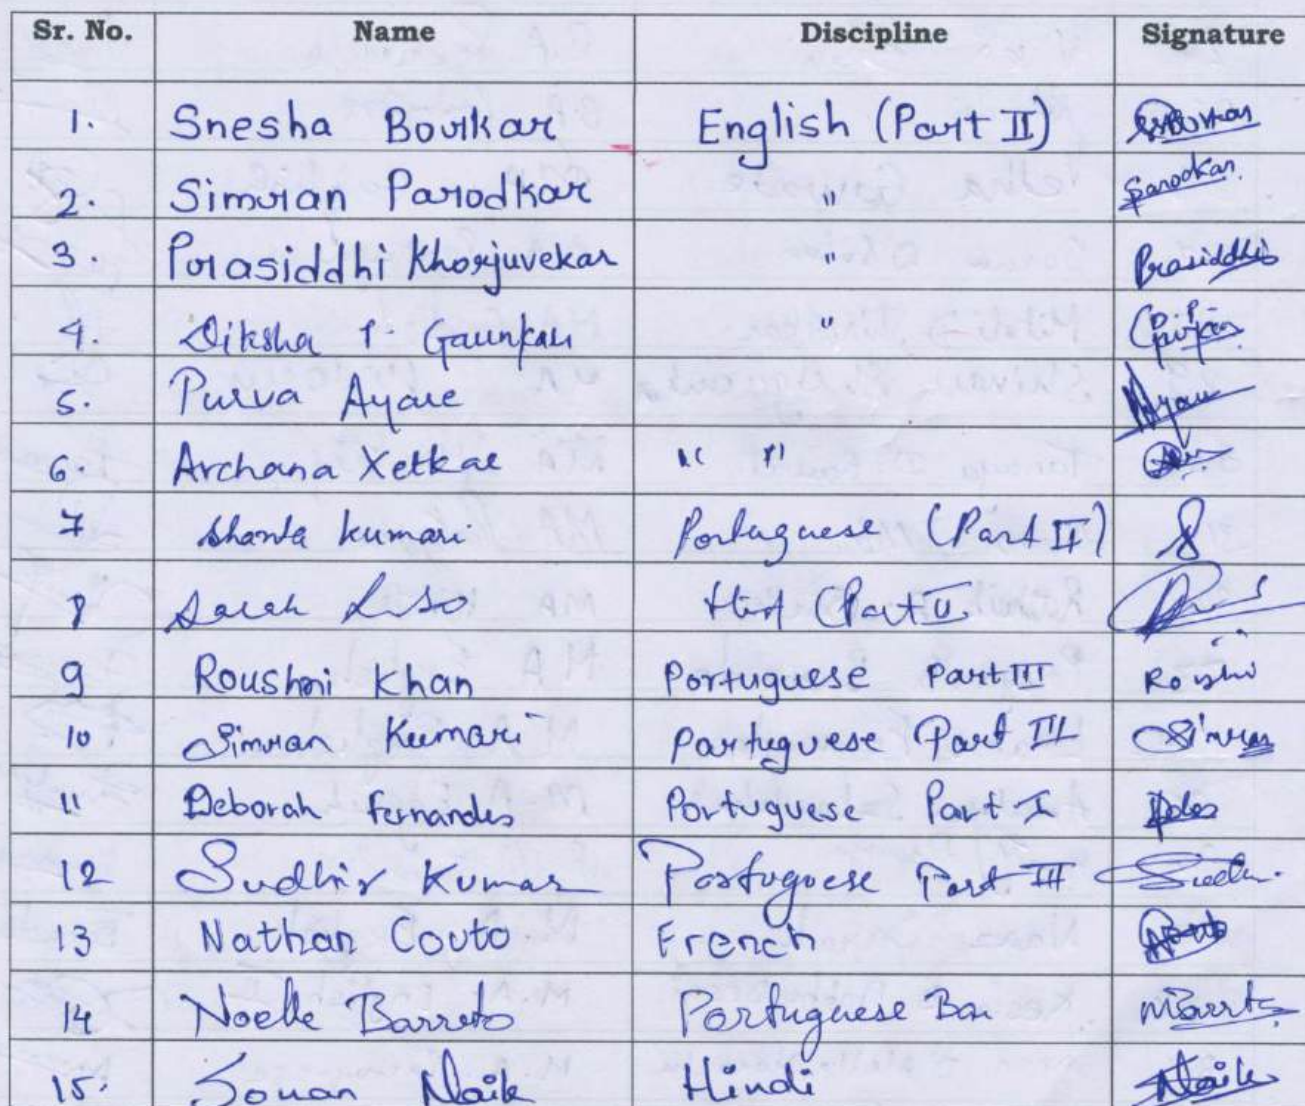 Sr. No. Name Discipline Signature
1. Snesha Borkar English (Part II)
2. Simran Parodkar " Parodkar
3. Prasiddhi Khorjuvekar " Prasiddhi
4. Diksha P. Gaunkar "
5. Purva Ayare Ayare
6. Archana Xetkar " "
7 Shanta Kumari Portuguese (Part II)
8 Sarah (Part II
9 Roushni Khan Portuguese Part III Roshni
10 Simran Kumari Portuguese Part III Simran
11 Deborah Fernandes Portuguese Part I
12 Sudhir Kumar Portuguese Part III
13 Nathan Couto French
14 Noelle Barreto Portuguese
15. Sonan Naik Hindi Naik